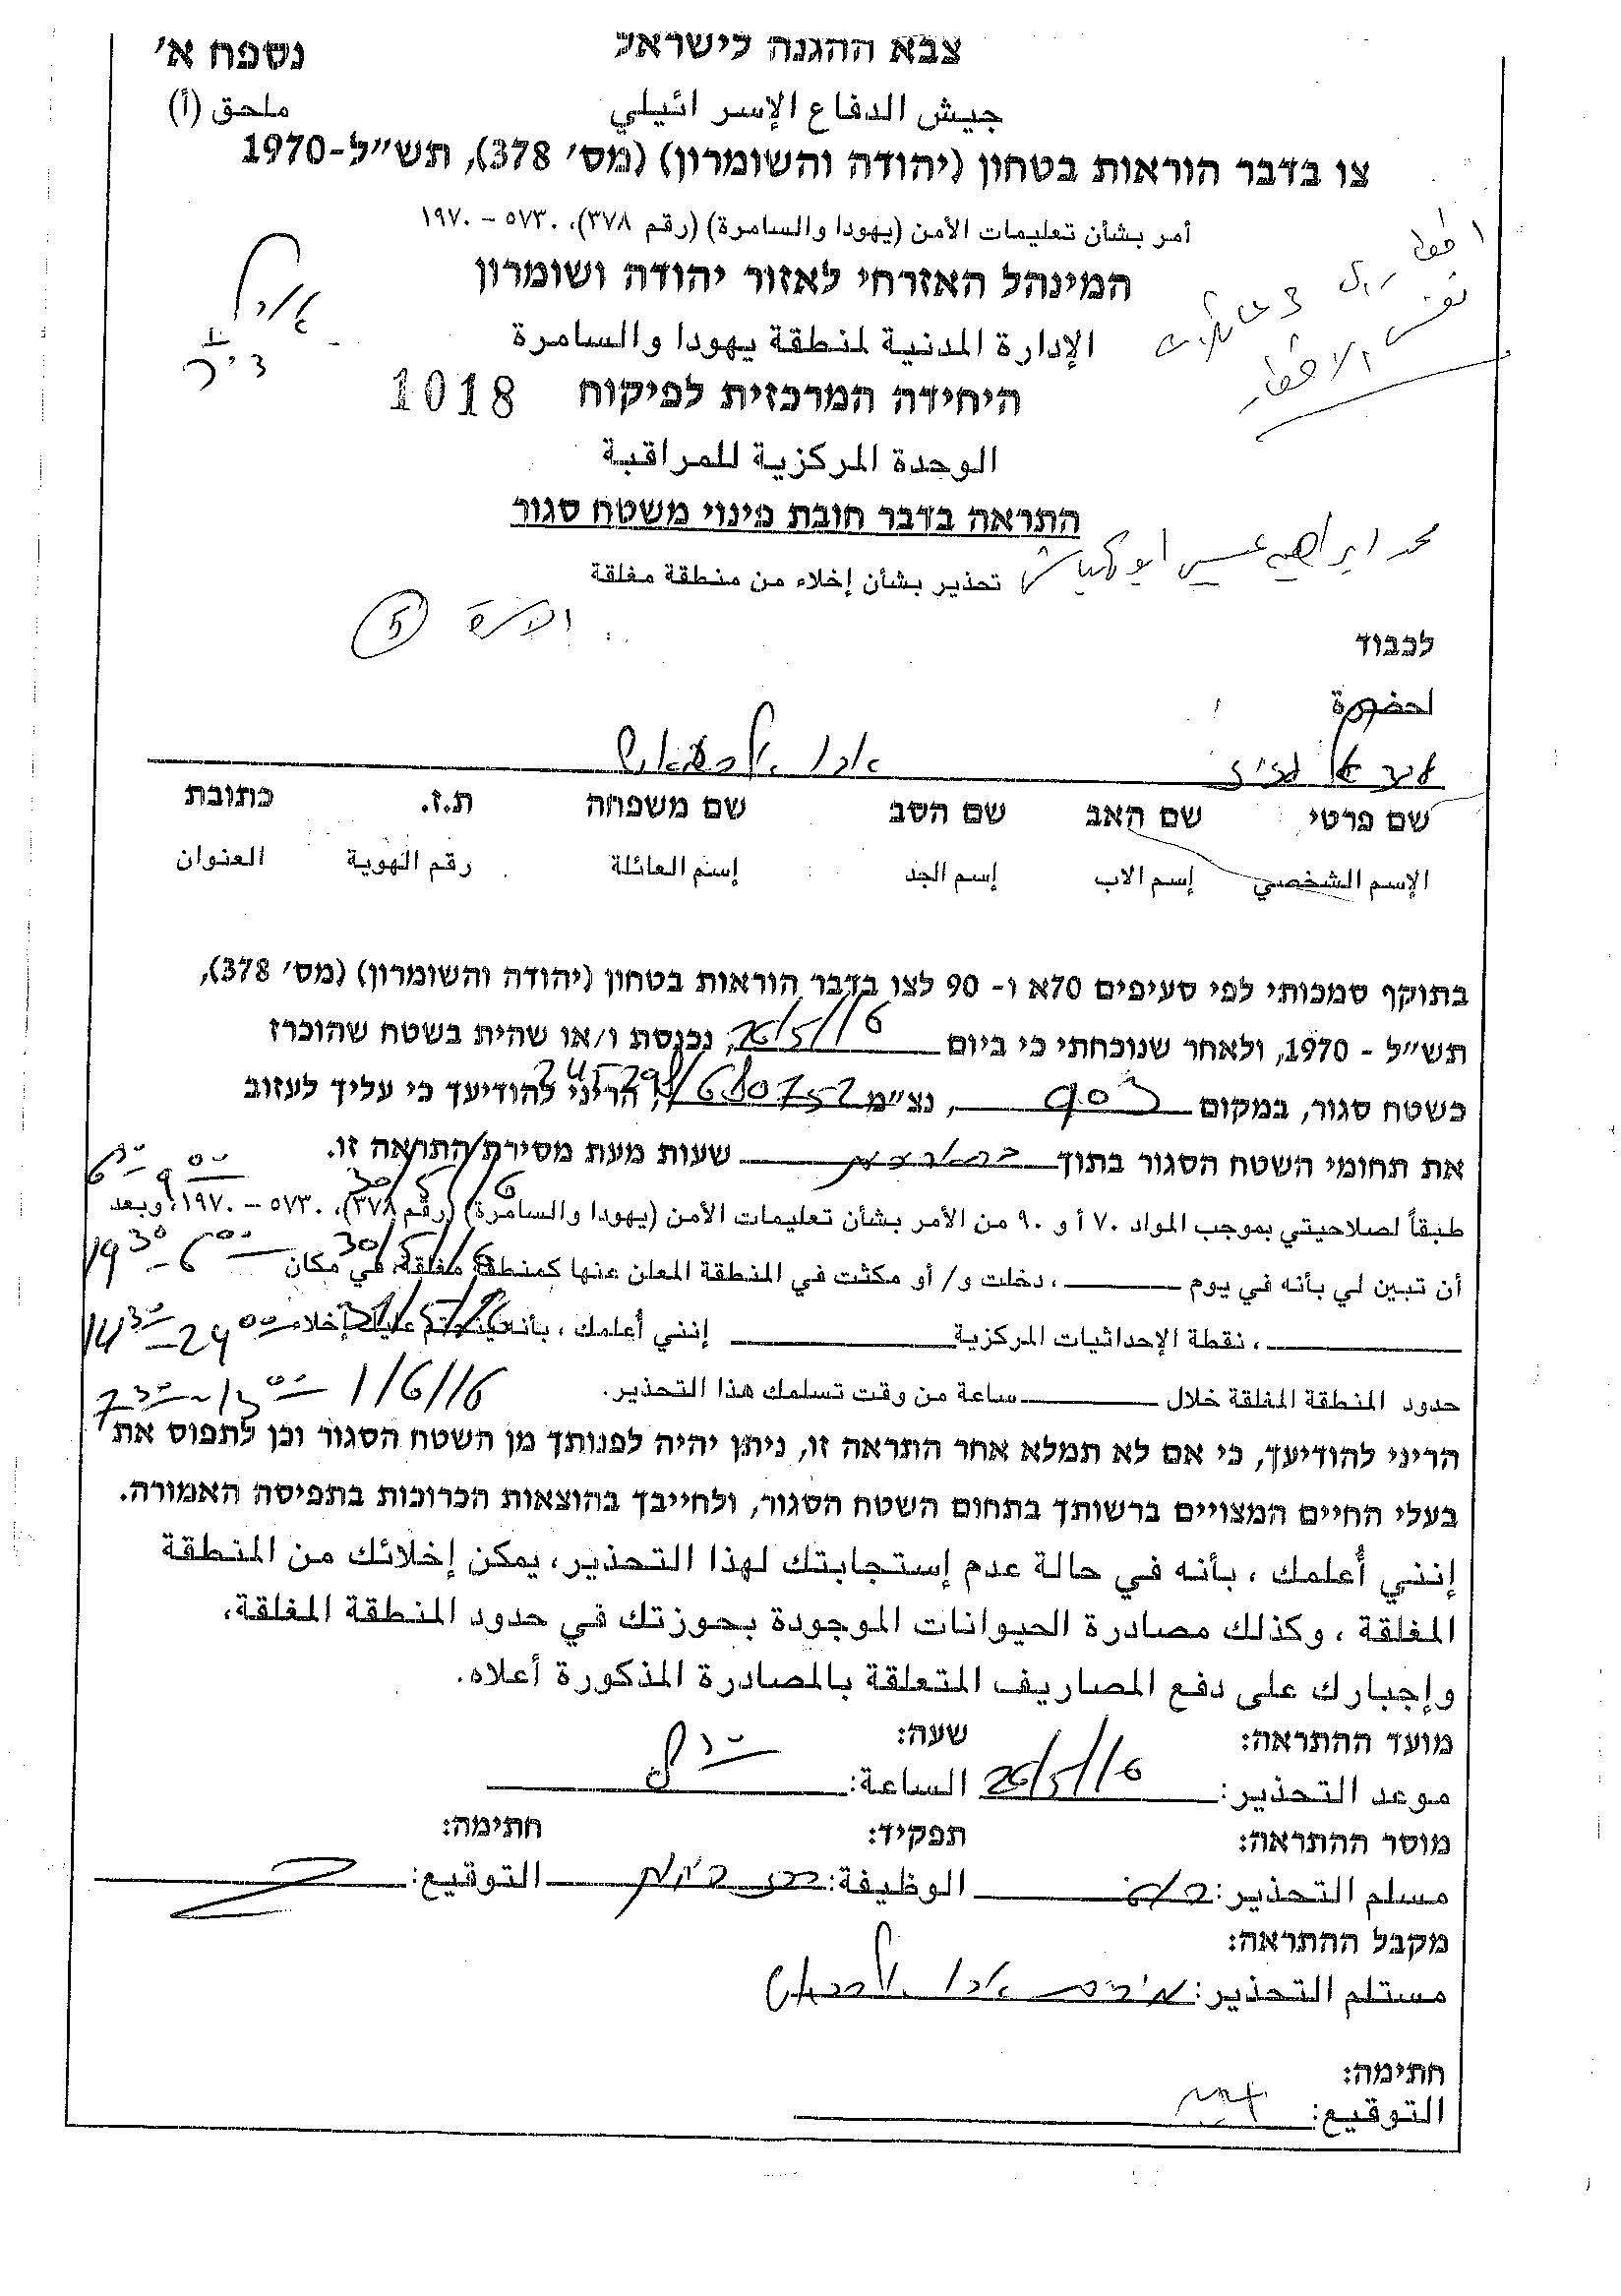 נספח א'
צבא ההגנה לישראל
ملحق (أ)
جيش الدفاع الإسرائيلي
צו בדבר הוראות בטחון (יהודה והשומרון) (מס' 378), תש"ל-1970
أمر بشأن تعليمات الأمن (يهودا والسامرة) (رقم ٣٧٨)، ٥٧٣٠ – ١٩٧٠
המינהל האזרחי לאזור יהודה ושומרון
الإدارة المدنية لمنطقة يهودا والسامرة
היחידה המרכזית לפיקוח 1018
الوحدة المركزية للمراقبة
התראה בדבר חובת פינוי משטח סגור
محمد ابراهيم عيسى ابو
تحذير بشأن إخلاء من منطقة مغلقة
5
לכבוד
לحضرة
שם פרטי שם האב שם הסב שם משפחה ת.ז. כתובת
الإسم الشخصي إسم الاب إسم الجد إسم العائلة رقم الهوية العنوان
בתוקף סמכותי לפי סעיפים 70א ו- 90 לצו בדבר הוראות בטחון (יהודה והשומרון) (מס' 378),
תש"ל - 1970, ולאחר שנוכחתי כי ביום 26/5/16, נכנסת ו/או שהית בשטח שהוכרז
כשטח סגור, במקום 903, נצ"מ הריני להודיעך כי עליך לעזוב
את תחומי השטח הסגור בתוך שעות מעת מסירת התראה זו.
طبقاً لصلاحيتي بموجب المواد ٧٠ أ و ٩٠ من الأمر بشأن تعليمات الأمن (يهودا والسامرة) (رقم ٣٧٨)، ٥٧٣٠ – ١٩٧٠، وبعد
30/5/16
أن تبين لي بأنه في يوم ، دخلت و/ أو مكثت في المنطقة المعلن عنها كمنطقة مغلقة، في مكان
30/5/16
، نقطة الإحداثيات المركزية إنني أعلمك ، بأنه يتحتم عليك إخلاء
31/5/16
حدود المنطقة المغلقة خلال ساعة من وقت تسلمك هذا التحذير.
1/6/16
הריני להודיעך, כי אם לא תמלא אחר התראה זו, ניתן יהיה לפנותך מן השטח הסגור וכן לתפוס את
בעלי החיים המצויים ברשותך בתחום השטח הסגור, ולחייבך בהוצאות הכרוכות בתפיסה האמורה.
إنني أُعلمك ، بأنه في حالة عدم إستجابتك لهذا التحذير، يمكن إخلائك من المنطقة
المغلقة ، وكذلك مصادرة الحيوانات الموجودة بحوزتك في حدود المنطقة المغلقة،
وإجبارك على دفع المصاريف المتعلقة بالمصادرة المذكورة أعلاه.
מועד ההתראה: שעה:
موعد التحذير: 26/5/16 الساعة:
מוסר ההתראה: תפקיד: חתימה:
مسلم التحذير: الوظيفة: التوقيع:
מקבל ההתראה:
مستلم التحذير:
חתימה:
التوقيع: